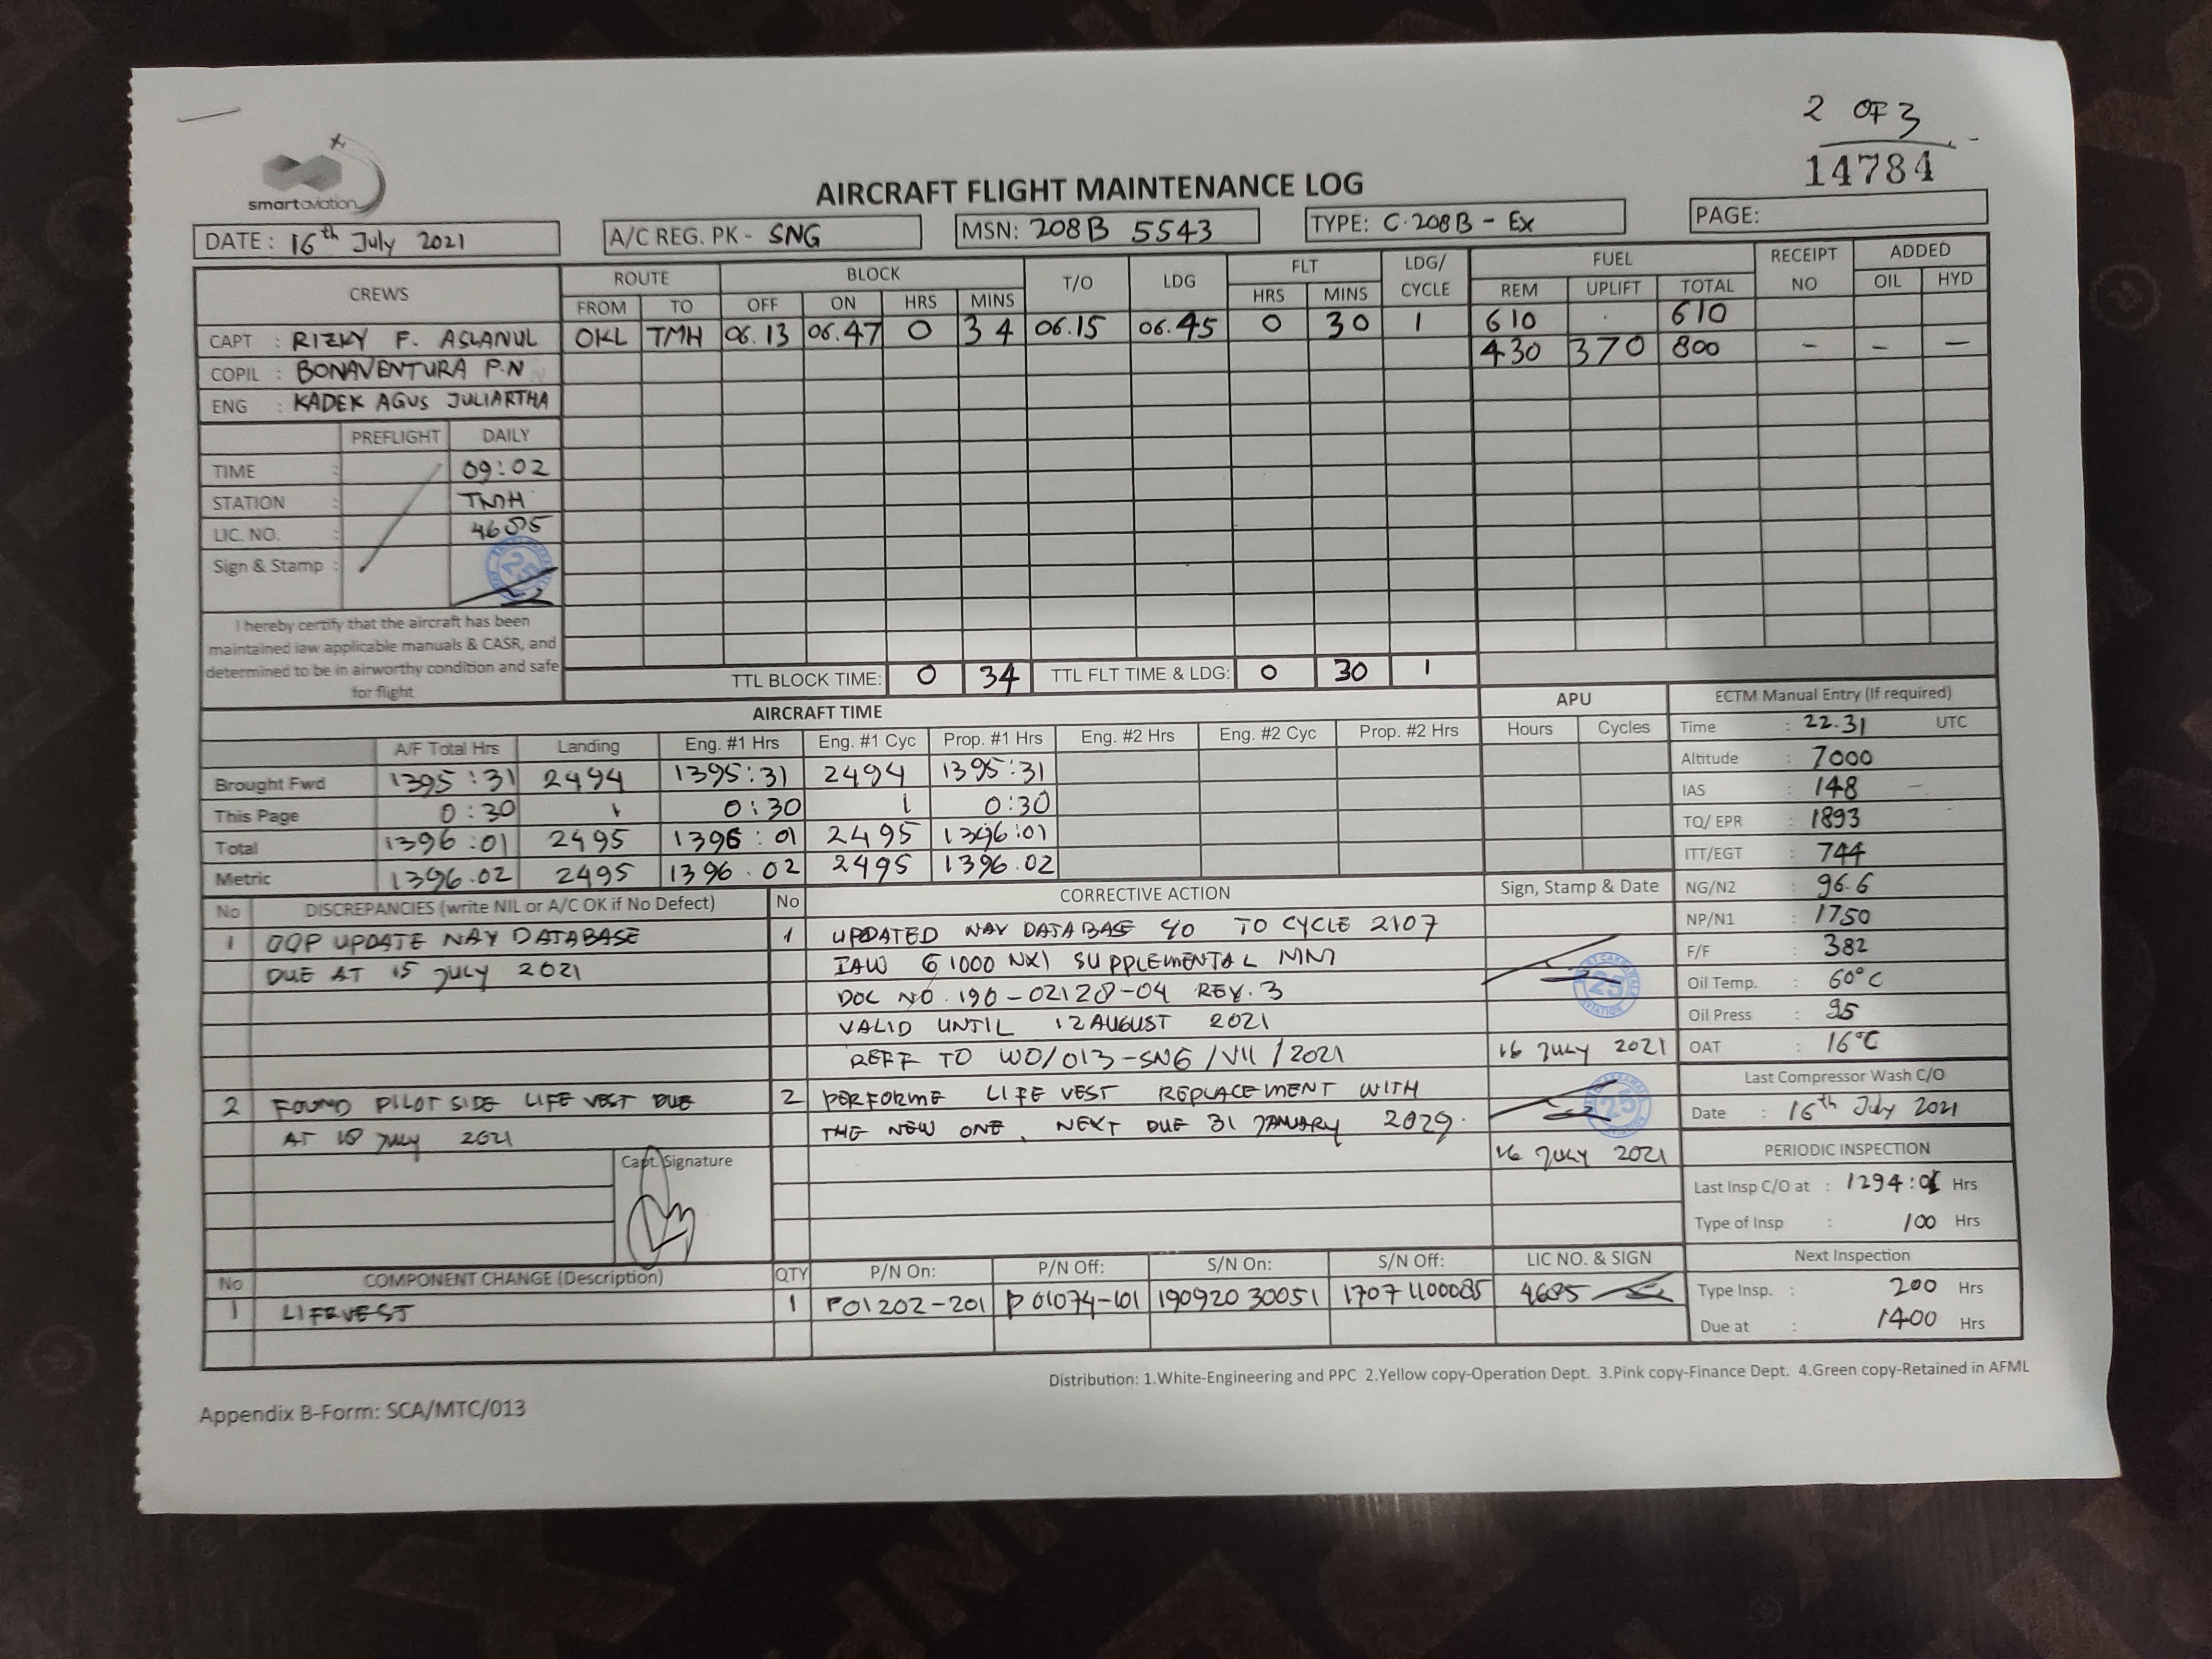 2 OF 3
14784
smartaviation
AIRCRAFT FLIGHT MAINTENANCE LOG
DATE : 16th July 2021 A/C REG. PK - SNG MSN: 208B 5543 TYPE: C.208B - Ex PAGE:
CREWS ROUTE BLOCK T/O LDG FLT LDG/ CYCLE FUEL RECEIPT NO ADDED
FROM TO OFF ON HRS MINS HRS MINS REM UPLIFT TOTAL OIL HYD
CAPT : RIZKY F. ASLANUL OKL TMH 06.13 06.47 0 34 06.15 06.45 0 30 1 610 . 610
COPIL : BONAVENTURA P.N 430 370 800 - - -
ENG : KADEK AGUS JULIARTHA
PREFLIGHT DAILY
TIME : 09:02
STATION : TMH
LIC. NO. : 4685
Sign & Stamp :
25
I hereby certify that the aircraft has been
maintained iaw applicable manuals & CASR, and
determined to be in airworthy condition and safe
for flight
TTL BLOCK TIME: 0 34 TTL FLT TIME & LDG: 0 30 1
AIRCRAFT TIME APU ECTM Manual Entry (If required)
A/F Total Hrs Landing Eng. #1 Hrs Eng. #1 Cyc Prop. #1 Hrs Eng. #2 Hrs Eng. #2 Cyc Prop. #2 Hrs Hours Cycles
Brought Fwd 1395:31 2494 1395:31 2494 1395:31
This Page 0:30 1 0:30 1 0:30
Total 1396:01 2495 1396:01 2495 1396:01
Metric 1396.02 2495 1396.02 2495 1396.02
Time : 22.31 UTC
Altitude : 7000
IAS : 148
TQ/ EPR : 1893
ITT/EGT : 744
NG/N2 : 96.6
NP/N1 : 1750
F/F : 382
Oil Temp. : 60°C
Oil Press : 95
OAT : 16°C
Last Compressor Wash C/O
Date : 16th July 2021
PERIODIC INSPECTION
Last Insp C/O at : 1294:01 Hrs
Type of Insp : 100 Hrs
Next Inspection
Type Insp. : 200 Hrs
Due at : 1400 Hrs
No DISCREPANCIES (write NIL or A/C OK if No Defect) No CORRECTIVE ACTION Sign, Stamp & Date
1 OOP UPDATE NAV DATABASE 1 UPDATED NAV DATABASE TO CYCLE 2107
DUE AT 15 JULY 2021 IAW G1000 NXI SUPPLEMENTAL MM
DOC NO. 190-02128-04 REV. 3
25
VALID UNTIL 12 AUGUST 2021
REFF TO WO/013-SNG/VII/2021 16 JULY 2021
2 FOUND PILOT SIDE LIFE VEST DUE 2 PERFORME LIFE VEST REPLACEMENT WITH
25
AT 10 JULY 2021 THE NEW ONE, NEXT DUE 31 JANUARY 2029.
Capt. Signature 16 JULY 2021
No COMPONENT CHANGE (Description) QTY P/N On: P/N Off: S/N On: S/N Off: LIC NO. & SIGN
1 LIFEVEST 1 P01202-201 P01074-101 19092030051 17071100085 4685
Distribution: 1.White-Engineering and PPC 2.Yellow copy-Operation Dept. 3.Pink copy-Finance Dept. 4.Green copy-Retained in AFML
Appendix B-Form: SCA/MTC/013